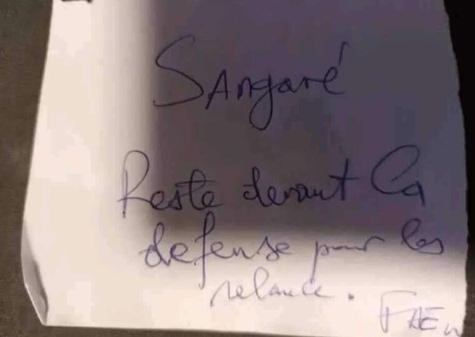 Sangaré
Reste devant la
defense pour les
relance.